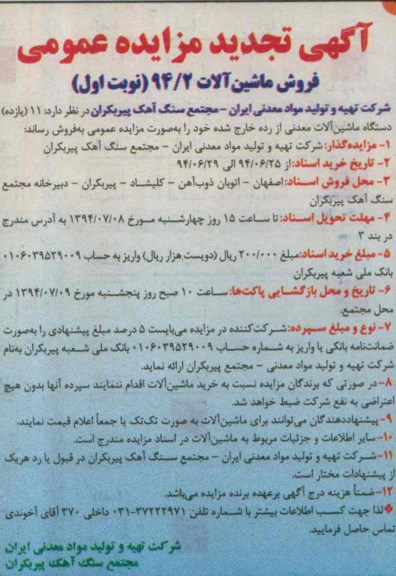 آگهی تجدید مزایده عمومی
فروش ماشین‌آلات ۹۴/۲ (نوبت اول)
شرکت تهیه و تولید مواد معدنی ایران - مجتمع سنگ آهک پیربکران در نظر دارد: ۱۱ (یازده)
دستگاه ماشین‌آلات معدنی از رده خارج شده خود را به‌صورت مزایده عمومی به‌فروش رساند:
۱- مزایده‌گذار: شرکت تهیه و تولید مواد معدنی ایران - مجتمع سنگ آهک پیربکران
۲- تاریخ خرید اسناد: از ۹۴/۰۶/۲۵ الی ۹۴/۰۶/۲۹
۳- محل فروش اسناد: اصفهان - اتوبان ذوب‌آهن - کلیشاد - پیربکران - دبیرخانه مجتمع
سنگ آهک پیربکران
۴- مهلت تحویل اسناد: تا ساعت ۱۵ روز چهارشنبه مورخ ۱۳۹۴/۰۷/۰۸ به آدرس مندرج
در بند ۳
۵- مبلغ خرید اسناد: مبلغ ۲۰۰/۰۰۰ ریال (دویست هزار ریال) واریز به حساب ۰۱۰۶۰۳۹۵۲۹۰۰۹
بانک ملی شعبه پیربکران
۶- تاریخ و محل بازگشایی پاکت‌ها: ساعت ۱۰ صبح روز پنجشنبه مورخ ۱۳۹۴/۰۷/۰۹ در
محل مجتمع.
۷- نوع و مبلغ سپرده: شرکت‌کننده در مزایده می‌بایست ۵ درصد مبلغ پیشنهادی را به‌صورت
ضمانت‌نامه بانکی یا واریز به شماره حساب ۰۱۰۶۰۳۹۵۲۹۰۰۹ بانک ملی شعبه پیربکران به‌نام
شرکت تهیه و تولید مواد معدنی - مجتمع پیربکران ارائه نماید.
۸- در صورتی که برندگان مزایده نسبت به خرید ماشین‌آلات اقدام ننمایند سپرده آنها بدون هیچ
اعتراضی به نفع شرکت ضبط خواهد شد.
۹- پیشنهاددهندگان می‌توانند برای ماشین‌آلات به صورت تک‌تک یا جمعاً اعلام قیمت نمایند.
۱۰- سایر اطلاعات و جزئیات مربوط به ماشین‌آلات در اسناد مزایده مندرج است.
۱۱- شرکت تهیه و تولید مواد معدنی ایران - مجتمع سنگ آهک پیربکران در قبول یا رد هریک
از پیشنهادات مختار است.
۱۲- ضمناً هزینه درج آگهی برعهده برنده مزایده می‌باشد.
❖لذا جهت کسب اطلاعات بیشتر با شماره تلفن ۳۷۲۲۲۹۷۱-۰۳۱ داخلی ۳۷۰ آقای آخوندی
تماس حاصل فرمایید.
شرکت تهیه و تولید مواد معدنی ایران
مجتمع سنگ آهک پیربکران